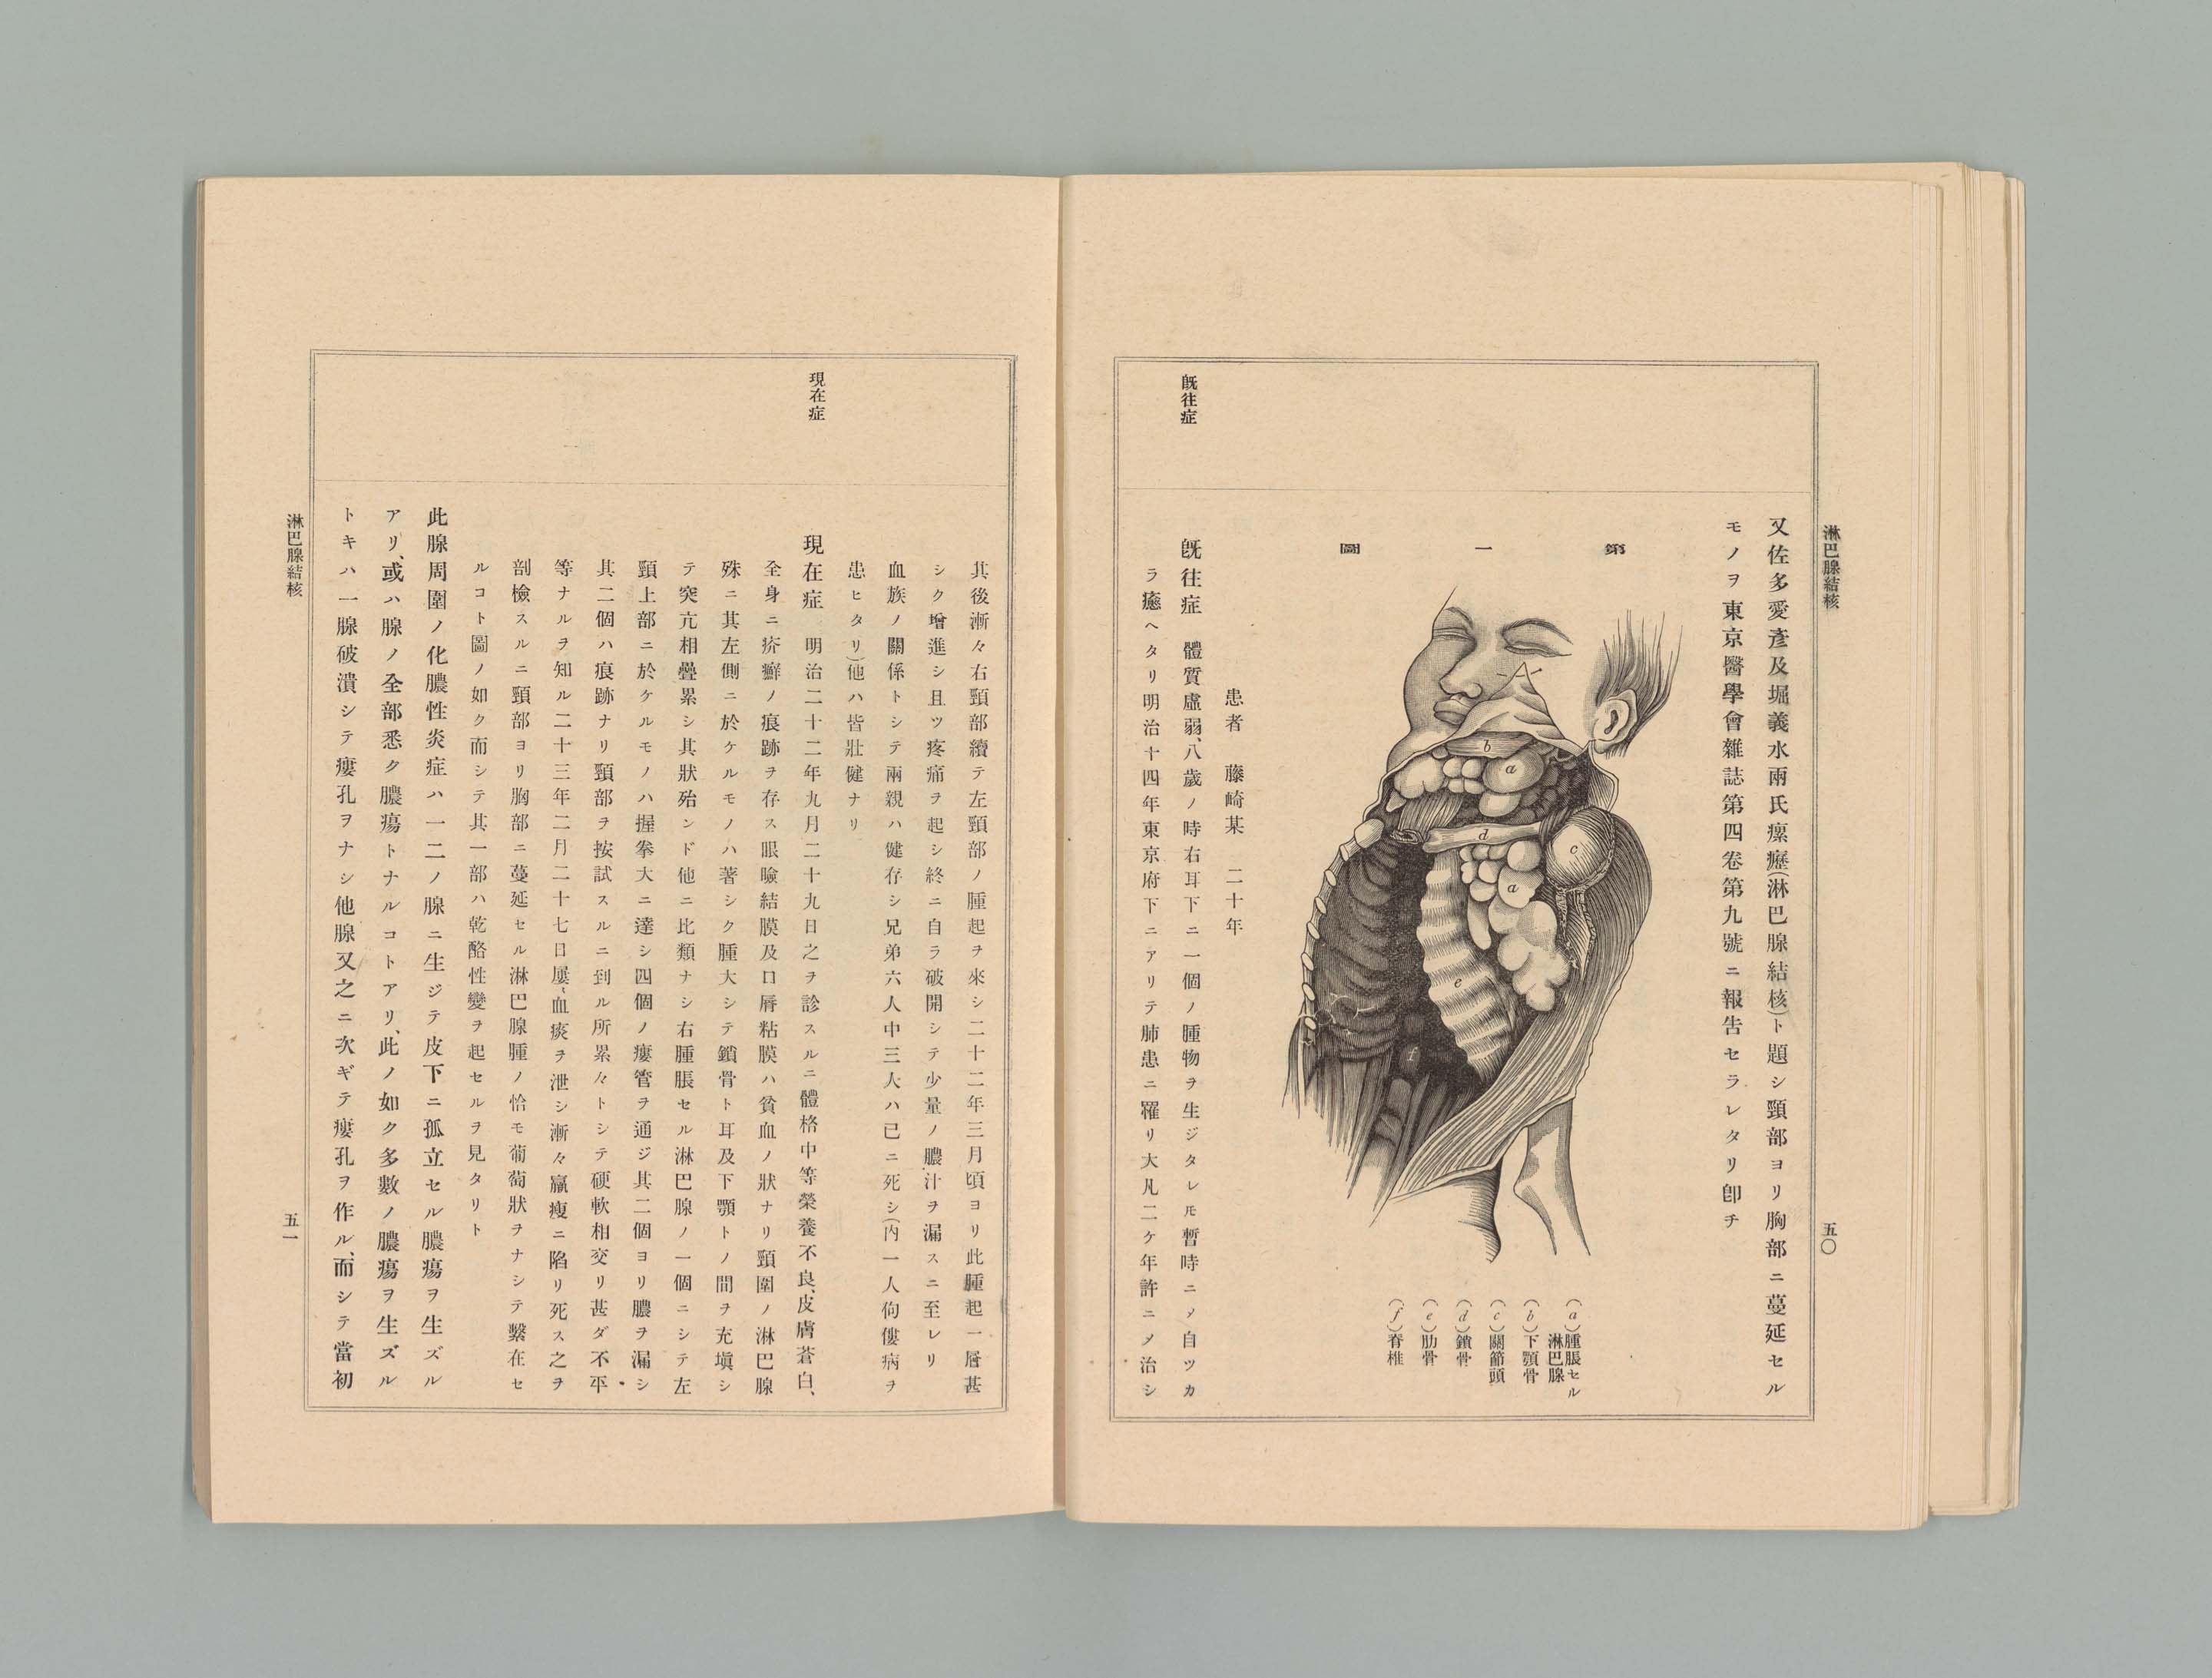 淋巴腺結核
五〇
又佐多愛彥及堀義水兩氏瘰癧(淋巴腺結核)ト題シ頸部ヨリ胸部ニ蔓延セル
モノヲ東京醫學會雜誌第四卷第九號ニ報告セラレタリ卽チ
第一圖
b
a
d
c
a
e
f
(a)腫脹セル
淋巴腺
(b)下顎骨
(c)關節頭
(d)鎖骨
(e)肋骨
(f)脊椎
患者 藤崎某 二十年
旣往症
旣往症 體質虛弱、八歲ノ時右耳下ニ一個ノ腫物ヲ生ジタレ𪜈暫時ニメ自ツカ
ラ癒ヘタリ明治十四年東京府下ニアリテ肺患ニ罹リ大凡二ケ年許ニメ治シ
其後漸々右頸部續テ左頸部ノ腫起ヲ來シ二十二年三月頃ヨリ此腫起一層甚
シク增進シ且ツ疼痛ヲ起シ終ニ自ラ破開シテ少量ノ膿汁ヲ漏スニ至レリ
血族ノ關係トシテ兩親ハ健存シ兄弟六人中三人ハ已ニ死シ(内一人佝僂病ヲ
患ヒタリ)他ハ皆壯健ナリ
現在症
現在症 明治二十二年九月二十九日之ヲ診スルニ體格中等榮養不良、皮膚蒼白、
全身ニ疥癬ノ痕跡ヲ存ス眼瞼結膜及口唇粘膜ハ貧血ノ狀ナリ頸圍ノ淋巴腺
殊ニ其左側ニ於ケルモノハ著シク腫大シテ鎖骨ト耳及下顎トノ間ヲ充塡シ
テ突亢相疊累シ其狀殆ンド他ニ比類ナシ右腫脹セル淋巴腺ノ一個ニシテ左
頸上部ニ於ケルモノハ握拳大ニ達シ四個ノ瘻管ヲ通ジ其二個ヨリ膿ヲ漏シ
其二個ハ痕跡ナリ頸部ヲ按試スルニ到ル所累々トシテ硬軟相交リ甚ダ不平
等ナルヲ知ル二十三年二月二十七日屢〻血痰ヲ泄シ漸々羸瘦ニ陷リ死ス之ヲ
剖檢スルニ頸部ヨリ胸部ニ蔓延セル淋巴腺腫ノ恰モ葡萄狀ヲナシテ繫在セ
ルコト圖ノ如ク而シテ其一部ハ乾酪性變ヲ起セルヲ見タリト
此腺周圍ノ化膿性炎症ハ一二ノ腺ニ生ジテ皮下ニ孤立セル膿瘍ヲ生ズル
アリ、或ハ腺ノ全部悉ク膿瘍トナルコトアリ、此ノ如ク多數ノ膿瘍ヲ生ズル
トキハ一腺破潰シテ瘻孔ヲナシ他腺又之ニ次ギテ瘻孔ヲ作ル、而シテ當初
淋巴腺結核
五一